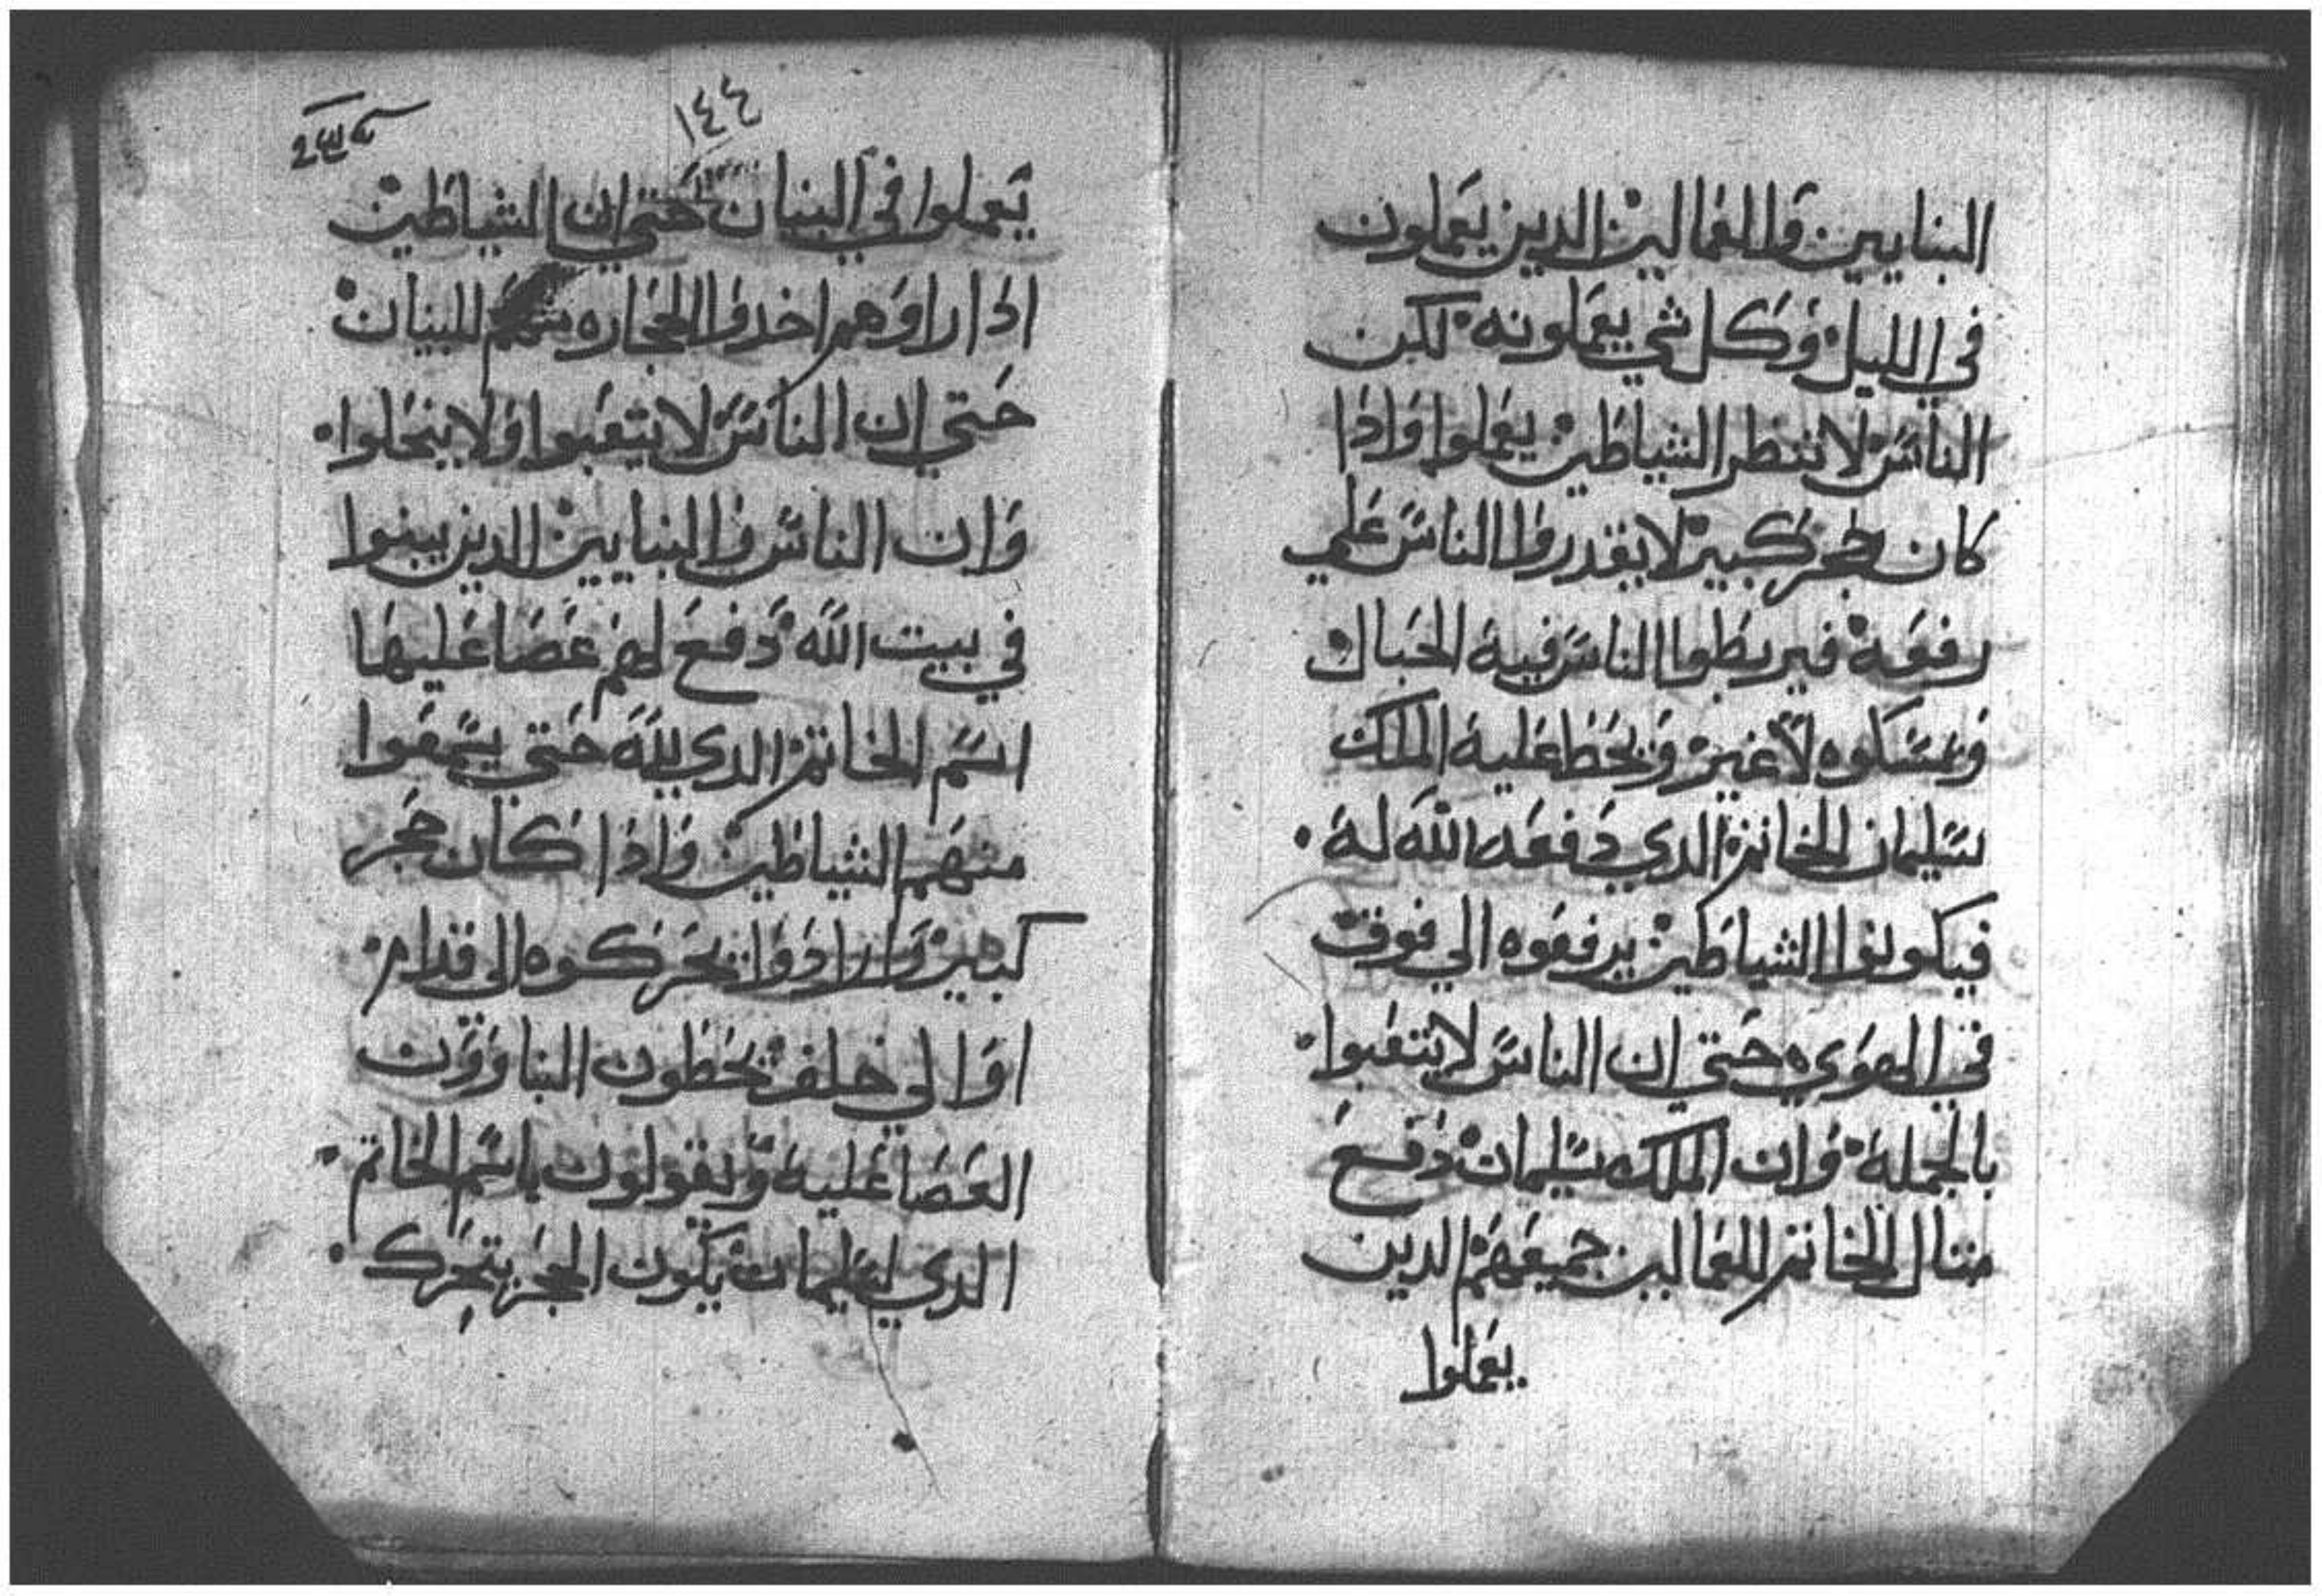 البنايين والفعالين الدين يعملون
في الليل وكل شي يعملونه لكن
الناس لا تنظر الشياطين يعملوا واذا
كان حجر كبير لا يقدروا الناس علي
رفعه فيربطوا الناس فيه الحبال
ويمسكوه لا غير ويحط عليه الملك
سليمان الخاتم الدي دفعه الله له
فيكونوا الشياطين يرفعوه الي فوق
في الهوي حتي ان الناس لا يتعبوا
بالجمله وان الملك سليمان دفع
متال الخاتم للفعالين جميعهم الدين
يعملوا
١٤٤
يعملوا في البنيان حتي ان الشياطين
اذا راوهم اخدوا الحجاره للبنيان
حتي ان الناس لا يتعبوا ولا ينحلوا
وان الناس والبنايين الدين يبنوا
في بيت الله دفع لهم عصا عليها
اسم الخاتم الدي لله حتي
منهم الشياطين واذا كان حجر
كبير وارادوا يحركوه الي قدام
او الي خلف يحطون البناوون
العصا عليه ويقولون باسم الخاتم
الدي لسليمان يكون الحجر يتحرك